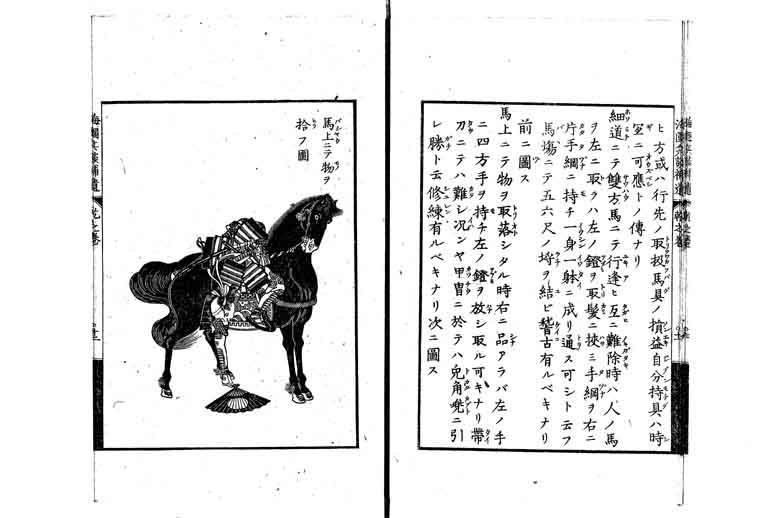 ヒ方或ハ行先ノ取扱馬具ノ損益自分持具ハ時
宜ニ可應トノ傳ナリ
細道ニテ雙方馬ニテ行逢ヒ互ニ難除時ハ人ノ馬
ヲ左ニ取ラハ左ノ鐙ヲ取髪ニ挾ミ手綱ヲ右ニ
片手綱ニ持チ一身一躰ニ成リ通ス可シト云フ
馬塲ニテ五六尺ノ埓ヲ結ビ稽古有ルベキナリ
前ニ圖ス
馬上ニテ物ヲ取落シタル時右ニ品アラバ左ノ手
ニ四方手ヲ持チ左ノ鐙ヲ放シ取ル可キナリ帶
刀ニテハ難シ况ンヤ甲冑ニ於テハ兎角鐙ニ引
レ勝ト云修練有ルベキナリ次ニ圖ス
馬上ニテ物ヲ
拾フ圖
海國兵談補遺